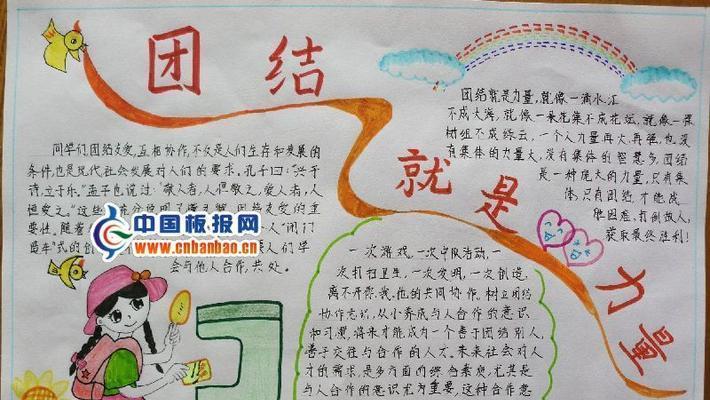 团结
就是
力量
同学们团结友爱,互相协作,不仅是人们生存和发展的
条件,也是现代社会发展对人们的要求,孔子曰:“兴于
诗,立于礼。”孟子也说过:“敬人者,人恒敬之,爱人者,人
恒爱之。”这些
性。随着
造车”式的创
会与他人合作,共处。
中国板报网
www.cnbanbao.cn
团结就是力量,就像一滴水,汇
不成大海,就像一朵花集不成花坛,就像一棵
树组不成绿云,一个人力量再大,再强,也没
有集体的力量大,没有集体的智慧多,团结
是一种庞大的力量,只有集
体,只有团结,才能战
胜困难,打倒敌人,
获取最终胜利!
一次游戏,一次中队活动,一
次打扫卫生,一次发明,一次创造,
离不开你,我,他的共同协作。树立团结
协作意识,从小养成与人合作的意识
和习惯,将来才能成为一个善于团结别人,
善于交往与合作的人才,未来社会对人
才的需求,是多方面的综合素质,尤其是
与人合作的意识尤为重要,这种合作意